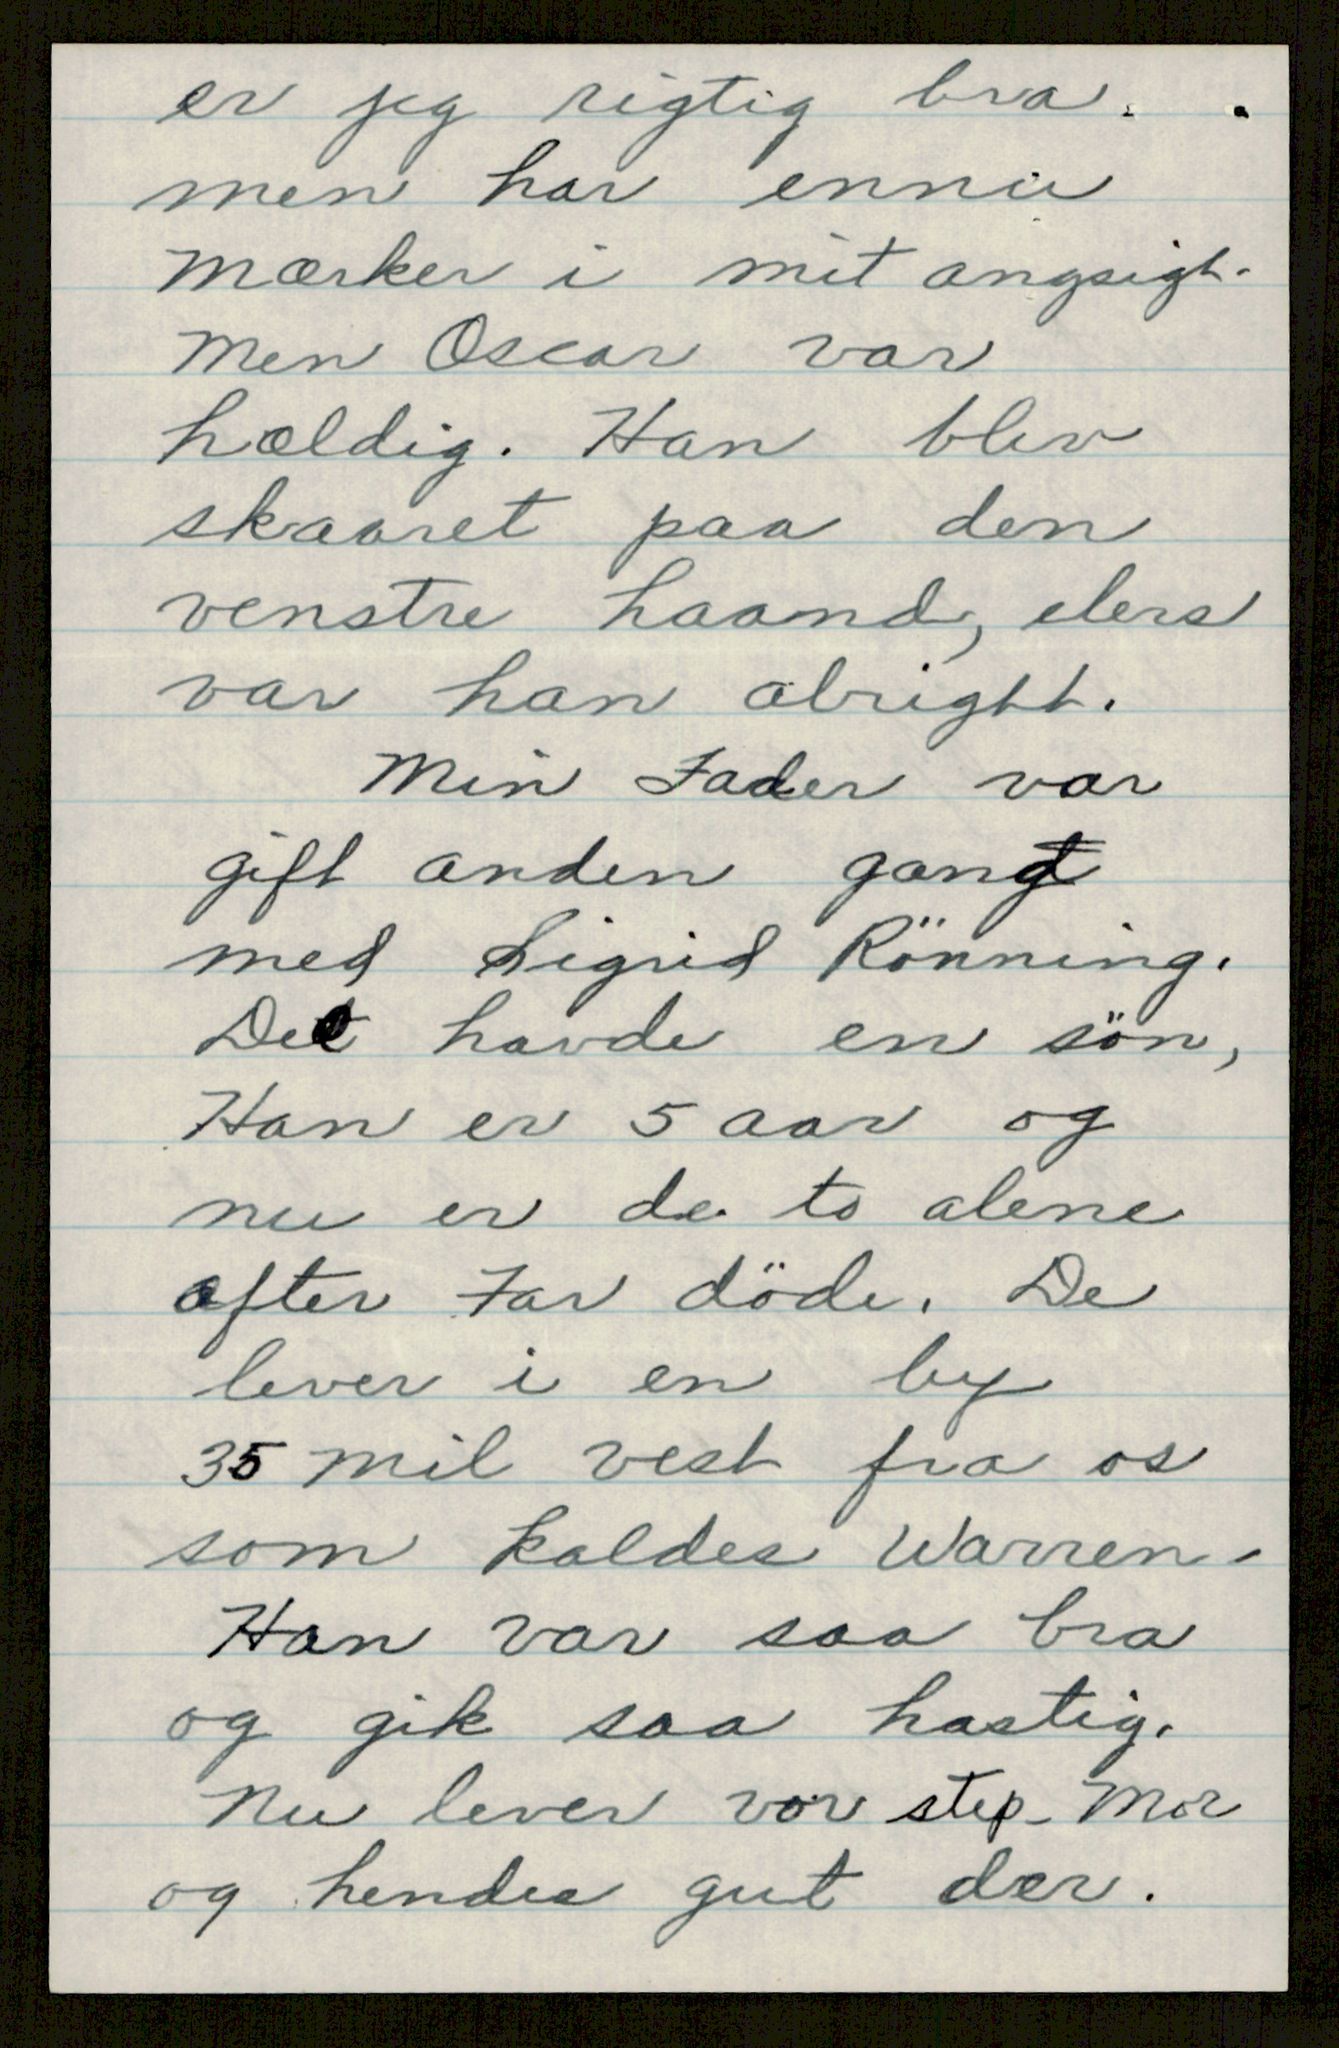 er jeg rigtig bra.
men har ennu
mærker i mit angsigt.
Men Oscar var
hældig. Han blev
skaaret paa den
venstre haand, elers
var han alright.
Min Fader var
gift anden gang
med Sigrid Rönning.
De havde en sön,
Han er 5 aar og
nu er de to alene
after Far döde. De
lever i en by
35 mil vest fra os
som kaldes Warren.
Han var saa bra
og gik saa hastig.
Nu lever vor step-Mor
og hendes gut der.